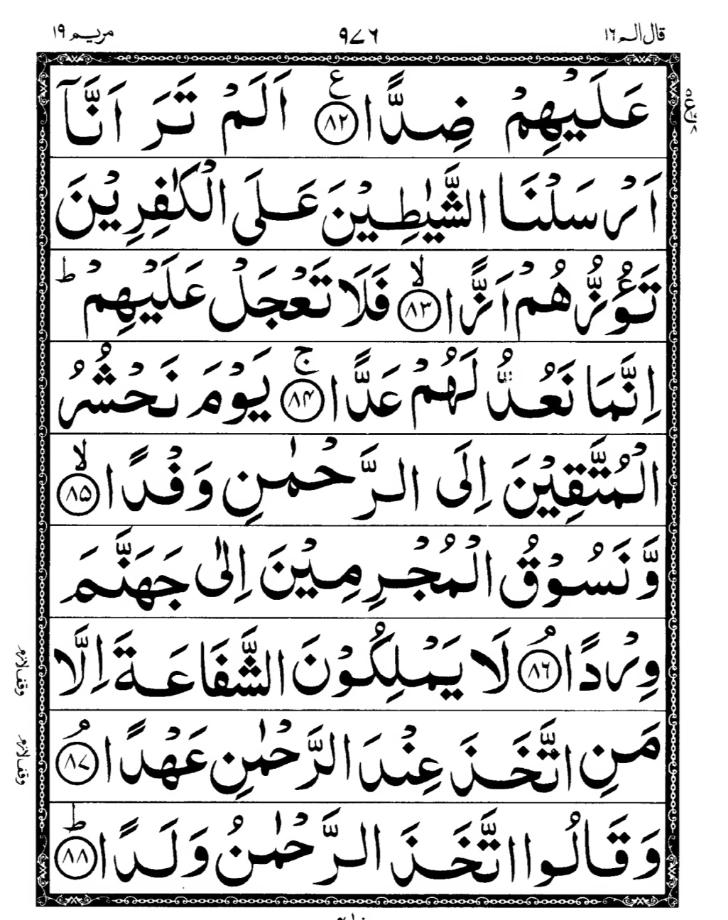 قال الم ١٦ ٩٧٦ مریم ١٩
عَلَيْهِمْ ضِدًّا ﴿٨٢﴾ ع اَلَمْ تَرَ اَنَّاۤ
اَرْسَلْنَا الشَّيٰطِيْنَ عَلَى الْكٰفِرِيْنَ
تَؤُزُّهُمْ اَزًّا ﴿٨٣﴾ لا فَلَا تَعْجَلْ عَلَيْهِمْ ط
اِنَّمَا نَعُدُّ لَهُمْ عَدًّا ﴿٨٤﴾ ج يَوْمَ نَحْشُرُ
الْمُتَّقِيْنَ اِلَى الرَّحْمٰنِ وَفْدًا ﴿٨٥﴾ لا
وَّنَسُوْقُ الْمُجْرِمِيْنَ اِلٰى جَهَنَّمَ
وِرْدًا ﴿٨٦﴾ م لَا يَمْلِكُوْنَ الشَّفَاعَةَ اِلَّا
وقف لازم
مَنِ اتَّخَذَ عِنْدَ الرَّحْمٰنِ عَهْدًا ﴿٨٧﴾ م
وقف لازم
وَقَالُوا اتَّخَذَ الرَّحْمٰنُ وَلَدًا ﴿٨٨﴾ ط